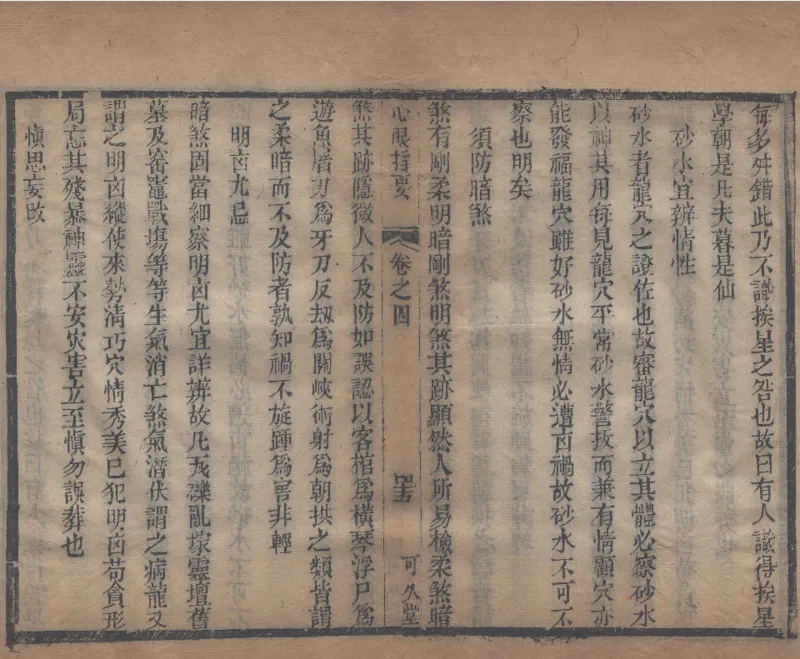 每多舛錯此乃不識挨星之咎也故曰有人識得挨星
學朝是凡夫暮是仙
砂水宜辨情性
砂水者龍穴之證佐也故審龍穴以立其體必察砂水
以神其用每見龍穴平常砂水警拔而兼有情顧穴亦
能發福龍穴雖好砂水無情必遭凶禍故砂水不可不
察也明矣
須防暗煞
煞有剛柔明暗剛煞明煞其跡顯然人所易檢柔煞暗
心眼指要
卷之四
可久堂
煞其跡隱微人不及防如誤認以客棺爲橫琴浮尸爲
遊魚屠刀爲牙刀反刧爲關峽術射爲朝拱之類皆謂
之柔暗而不及防者孰知禍不旋踵爲害非輕
明凶尤忌
暗煞固當細察明凶尤宜詳辨故凡瓦礫亂塚靈壇舊
墓及窰竈戰塲等等生氣消亡煞氣潛伏謂之病龍又
謂之明凶縱使來勢清巧穴情秀美已犯明凶苟貪形
局忘其殘暴神靈不安災害立至愼勿誤葬也
愼思妄改